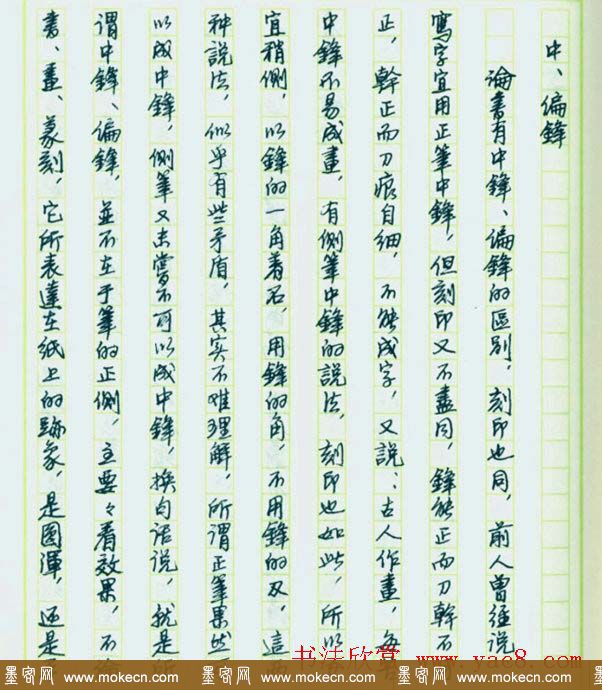 中、偏鋒
論書有中鋒、偏鋒的區别,刻印也同,前人曾經說
寫字宜用正筆中鋒,但刻印又不盡同,鋒能正而刀幹不
正,幹正而刀痕自細,不能成字,又說:古人作畫,每
中鋒不易成畫,有側筆中鋒的說法,刻印也如此,所以
宜稍側,以鋒的一角着石,用鋒的角,不用鋒的刃,這两
种說法,似乎有些矛盾,其实不难理解,所謂正筆果然
以成中鋒,側筆又未嘗不可以成中鋒,换句話說,就是所
謂中鋒、偏鋒,並不在于筆的正側,主要々看效果,不論
書、畫、篆刻,它所表達在紙上的跡象,是圆渾,还是
书法欣赏 www.yac8.com
墨客网 www.mokecn.com 墨客网 www.mokecn.com 墨客网 www.mokecn.com